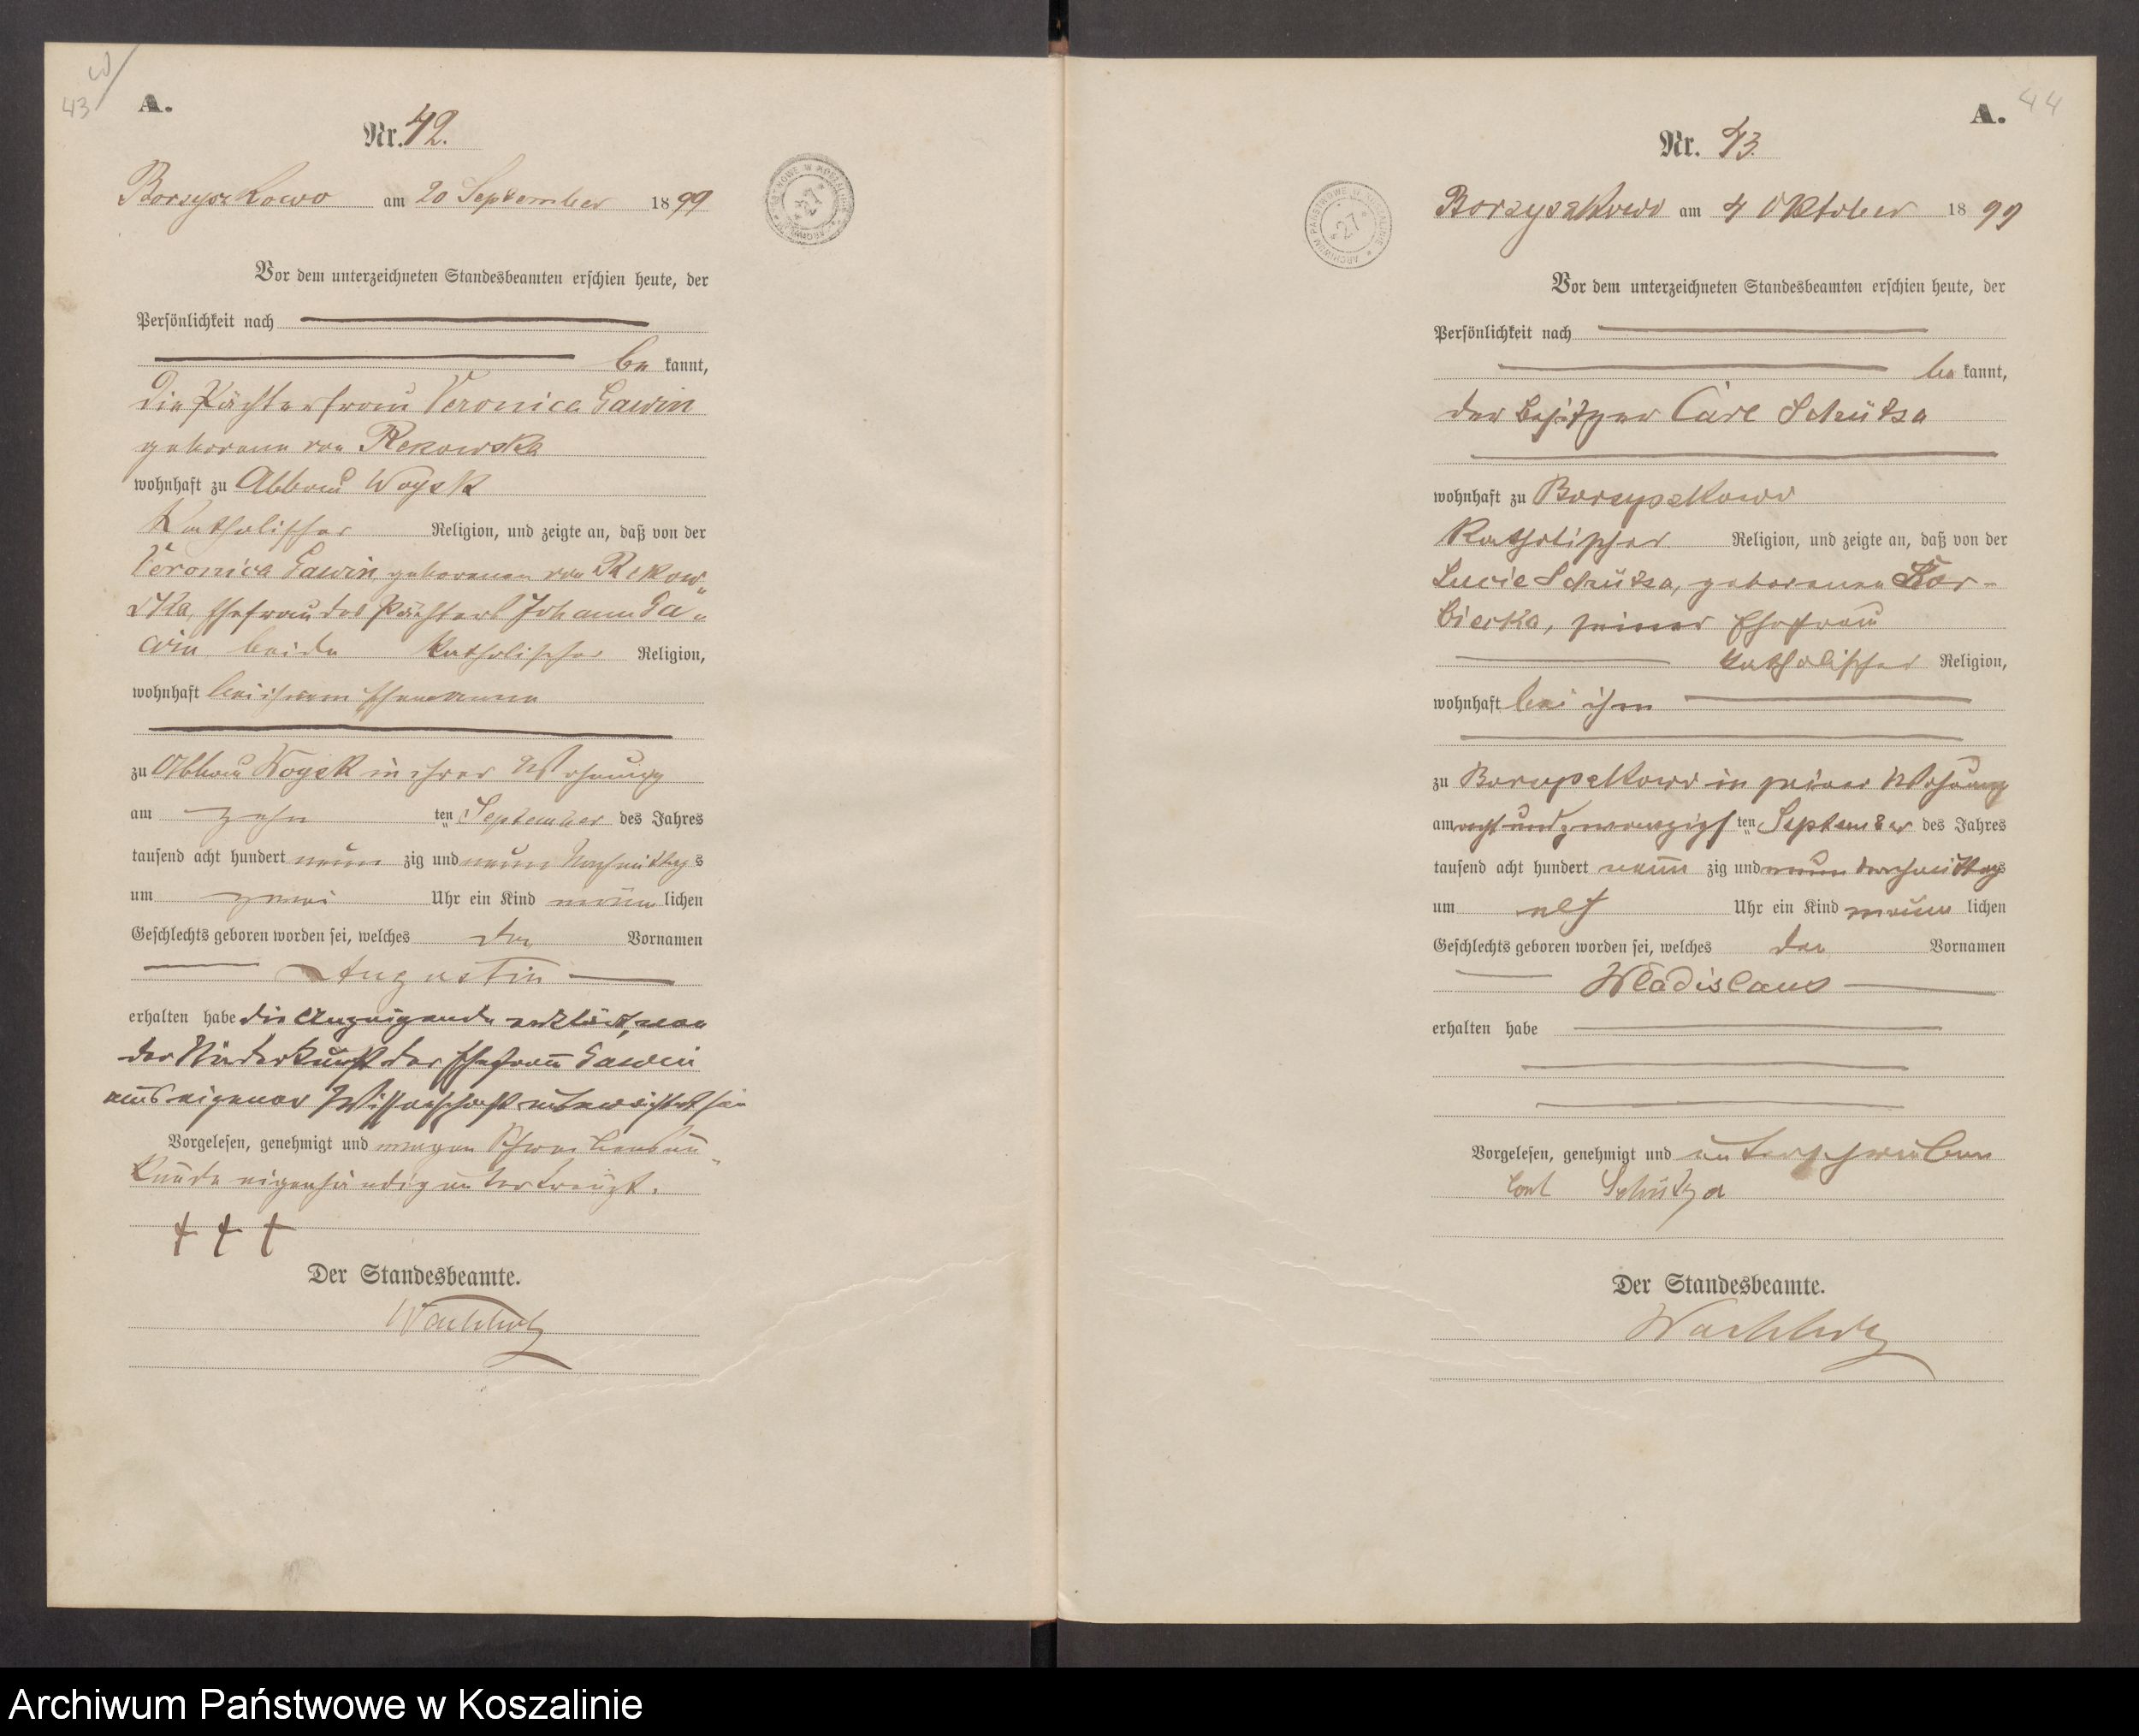 43
A.
Nr. 42.
Borzyszkowo am 20 September 1899
Vor dem unterzeichneten Standesbeamten erschien heute, der
Persönlichkeit nach
be kannt,
die Pächterfrau Veronica Gawin
geborene von Rekowska
wohnhaft zu Abbau Woysk
katholischer Religion, und zeigte an, daß von der
Veronica Gawin, geborenen von Rekow-
ska, Ehefrau des Pächters Johann Ga-
win, beide katholischer Religion,
wohnhaft bei ihrem Ehemanne
zu Abbau Woysk in ihrer Wohnung
am zehn ten September des Jahres
tausend acht hundert neun zig und neun Nachmittags
um zwei Uhr ein Kind männ lichen
Geschlechts geboren worden sei, welches den Vornamen
Augustin
erhalten habe die Anzeigende erklärt, von
der Niederkunft der Ehefrau Gawin
aus eigener Wissenschaft unterrichtet sei
Vorgelesen, genehmigt und wegen Schreibensun-
kunde eigenhändig unterkreuzt.
+ + +
Der Standesbeamte.
Wachholz
ARCHIWUM PAŃSTWOWE W KOSZALINIE
27
44
A.
Nr. 43.
Borzyszkowo am 4 Oktober 1899
Vor dem unterzeichneten Standesbeamten erschien heute, der
Persönlichkeit nach
be kannt,
der Besitzer Carl Schütza
wohnhaft zu Borzyszkowo
katholischer Religion, und zeigte an, daß von der
Lucie Schütza, geborenen
seiner Ehefrau
katholischer Religion,
wohnhaft bei ihm
zu Borzyszkowo in seiner Wohnung
am acht und zwanzigs ten September des Jahres
tausend acht hundert neun zig und neun Vormittags
um elf Uhr ein Kind männ lichen
Geschlechts geboren worden sei, welches den Vornamen
Wladislaus
erhalten habe
Vorgelesen, genehmigt und unterschrieben
Carl Schütza
Der Standesbeamte.
Wachholz
ARCHIWUM PAŃSTWOWE W KOSZALINIE
27
Archiwum Państwowe w Koszalinie